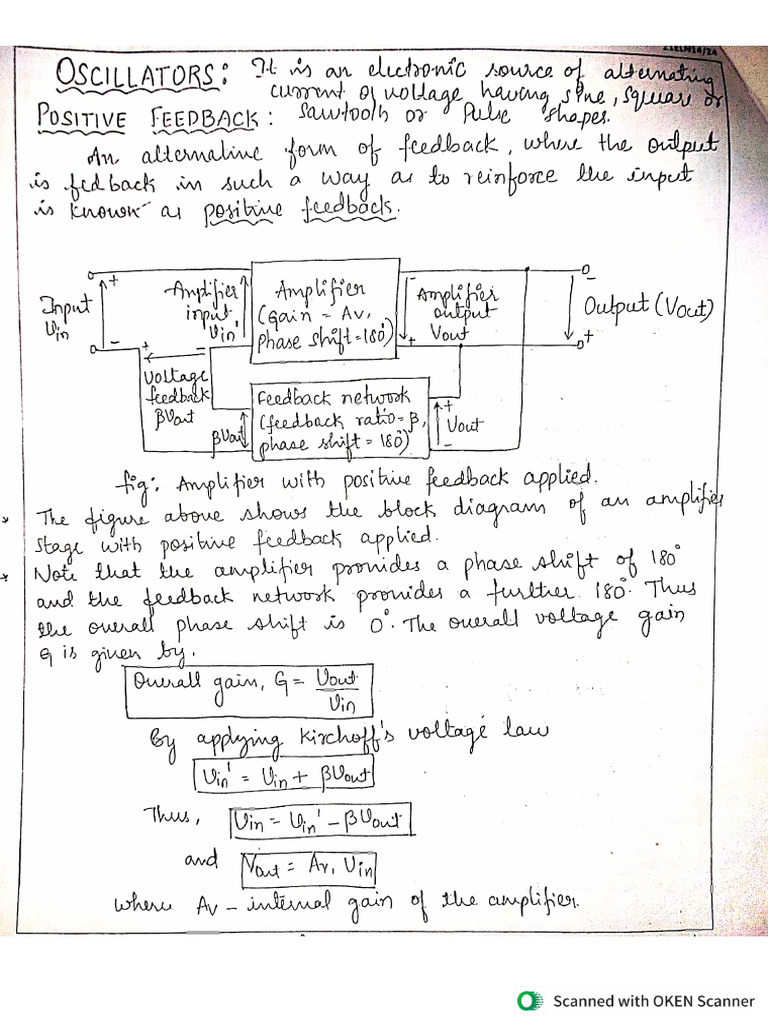 21ELN14/24
OSCILLATORS: It is an electronic source of alternating
current or voltage having sine, square or
POSITIVE FEEDBACK: sawtooth or Pulse shapes.
An alternative form of feedback, where the output
is fedback in such a way as to reinforce the input
is known as positive feedback.
Input
Vin
+
-
Amplifier
input
Vin'
+
-
Amplifier
(Gain = Av,
phase shift=180°)
-
Amplifier
output
Vout
+
-
Output (Vout)
+
Voltage
feedback
βVout
βVout
Feedback network
(feedback ratio=β,
phase shift = 180°)
+
Vout
-
fig: Amplifier with positive feedback applied.
The figure above shows the block diagram of an amplifier
stage with positive feedback applied.
Note that the amplifier provides a phase shift of 180°
and the feedback network provides a further 180°. Thus
the overall phase shift is 0°. The overall voltage gain
G is given by.
Overall gain, G = Vout
Vin
By applying Kirchoff's voltage law
Vin' = Vin + βVout
Thus, Vin = Vin' - βVout
and Vout = Av, Vin
where Av - internal gain of the amplifier.
Scanned with OKEN Scanner